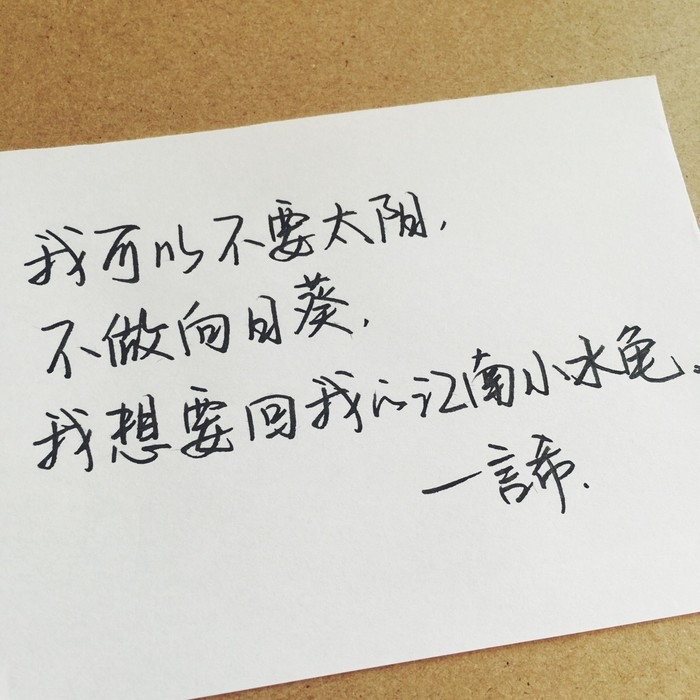 我可以不要太阳,
不做向日葵,
我想要回我的江南小水龟。
一言希.